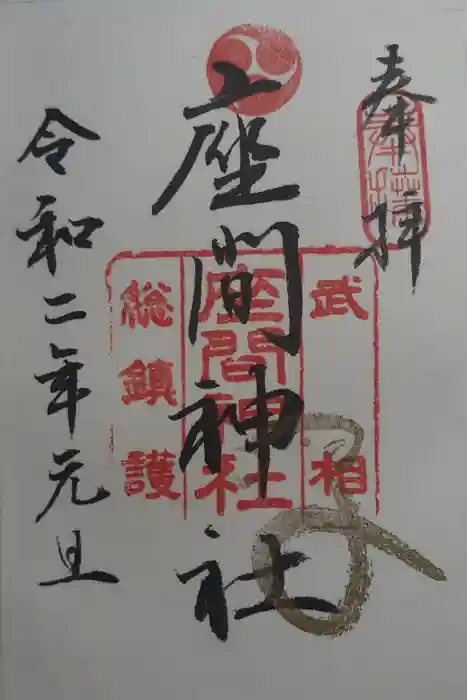 奉拝
奉拝
武相
座間神社
座間神社
総鎮護
令和二年元旦
子